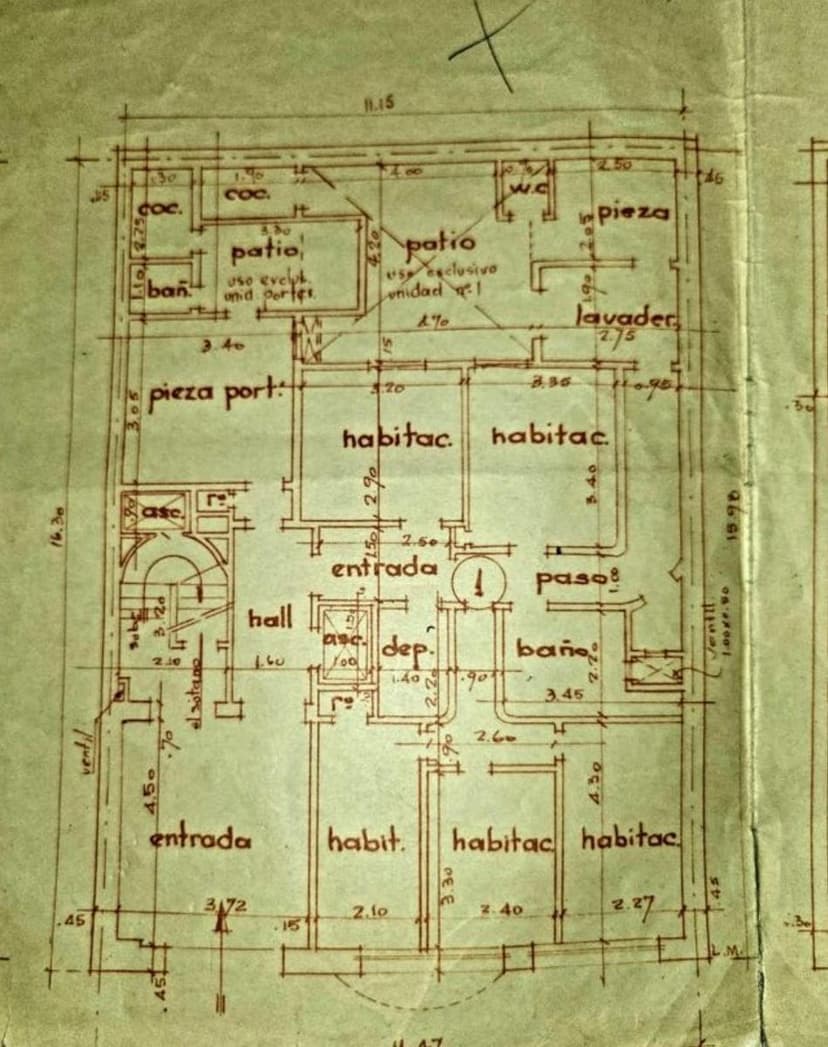 11.15
1.30
1.90
4.00
0.90
2.50
.15
coc.
coc.
w.c
pieza
2.75
3.30
4.20
2.05
patio
patio
uso exclus.
unid. porter.
uso exclusivo
unidad nº 1
1.10
bañ.
1.90
lavader.
4.70
2.75
3.40
.15
3.20
3.35
0.95
pieza port.
3.05
habitac.
habitac.
2.90
3.40
16.30
15.98
.90
asc.
2.50
1.50
entrada
1
paso
1.00
hall
sube
3.20
el sotano
asc.
1.00
dep.
baño
2.20
ventil
1.00x0.80
2.10
1.60
1.40
2.20
.90
3.45
ventil
.70
2.60
.90
4.50
4.30
entrada
habit.
habitac.
habitac.
3.30
.45
3.72
.15
2.10
2.40
2.27
.45
L.M.
.45
11.47